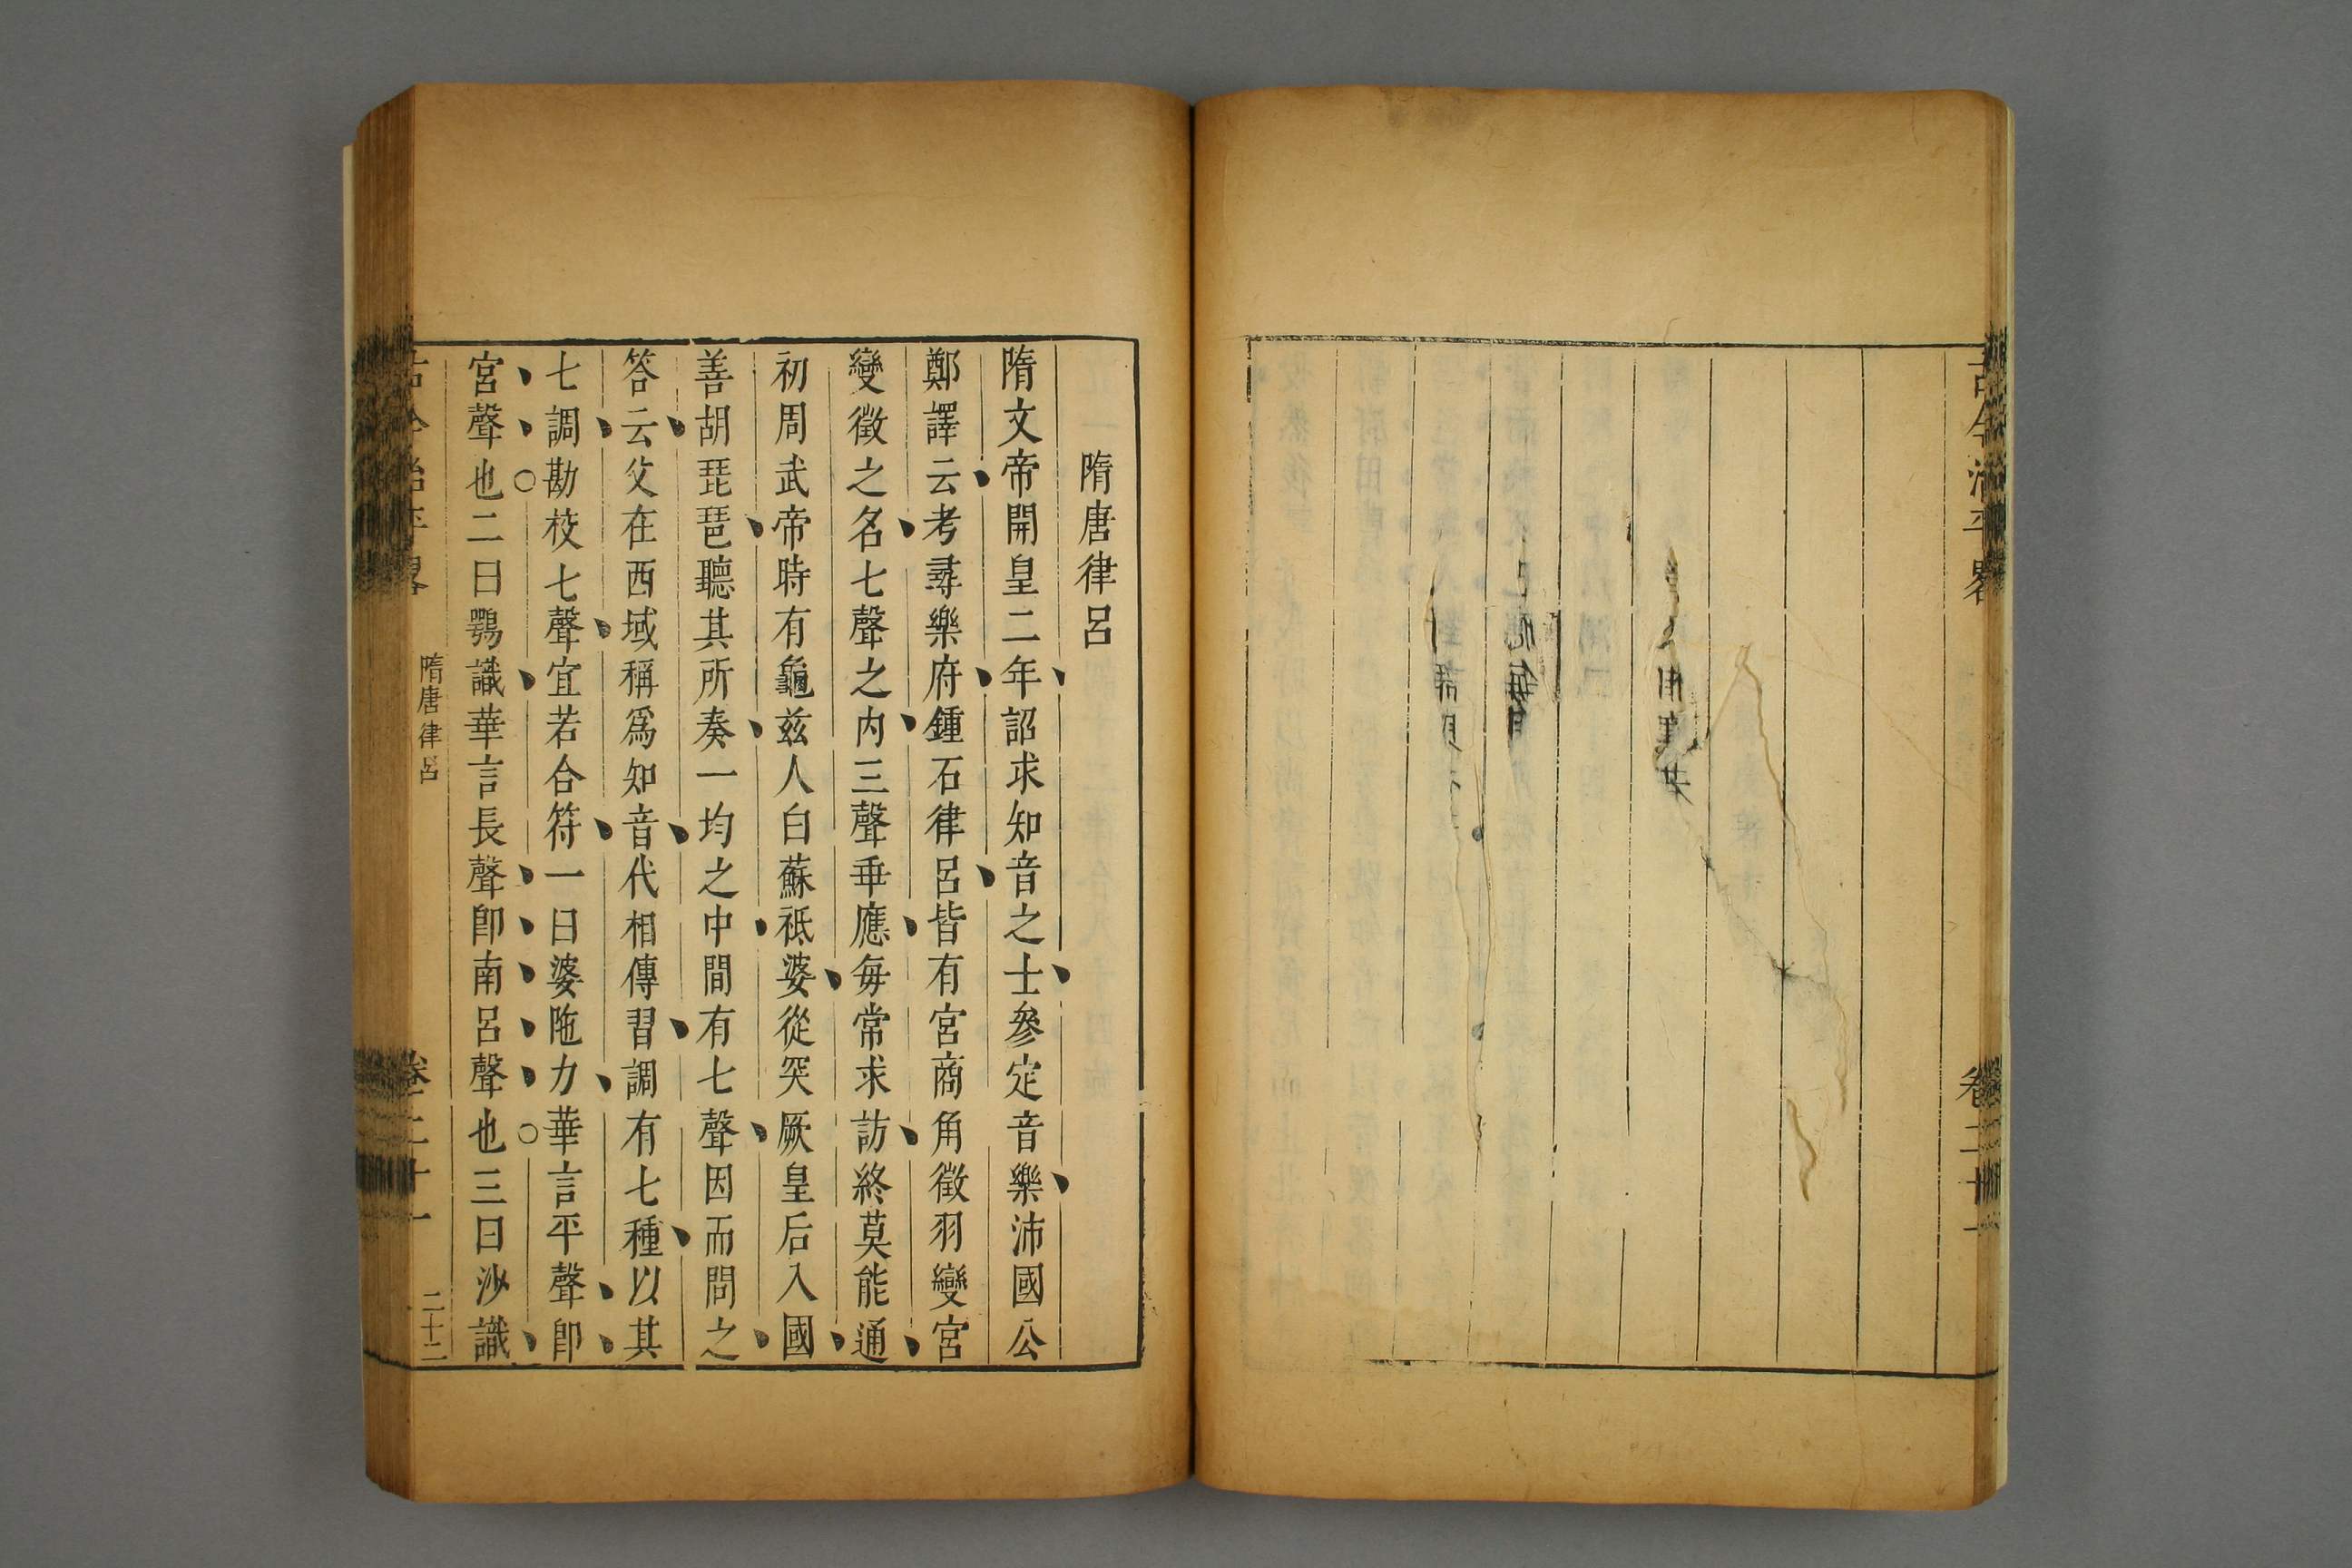 卷二十一
隋唐律呂
隋文帝開皇二年詔求知音之士參定音樂沛國公
鄭譯云考尋樂府鍾石律呂皆有宮商角徵羽變宮
變徵之名七聲之內三聲乖應每常求訪終莫能通
初周武帝時有龜茲人白蘇祗婆從突厥皇后入國
善胡琵琶聽其所奏一均之中間有七聲因而問之
答云父在西域稱爲知音代相傳習調有七種以其
七調勘校七聲宜若合符一曰婆陁力華言平聲卽
宮聲也二曰鷄識華言長聲卽南呂聲也三曰沙識
古今治平畧
隋唐律呂
卷二十一
二十二